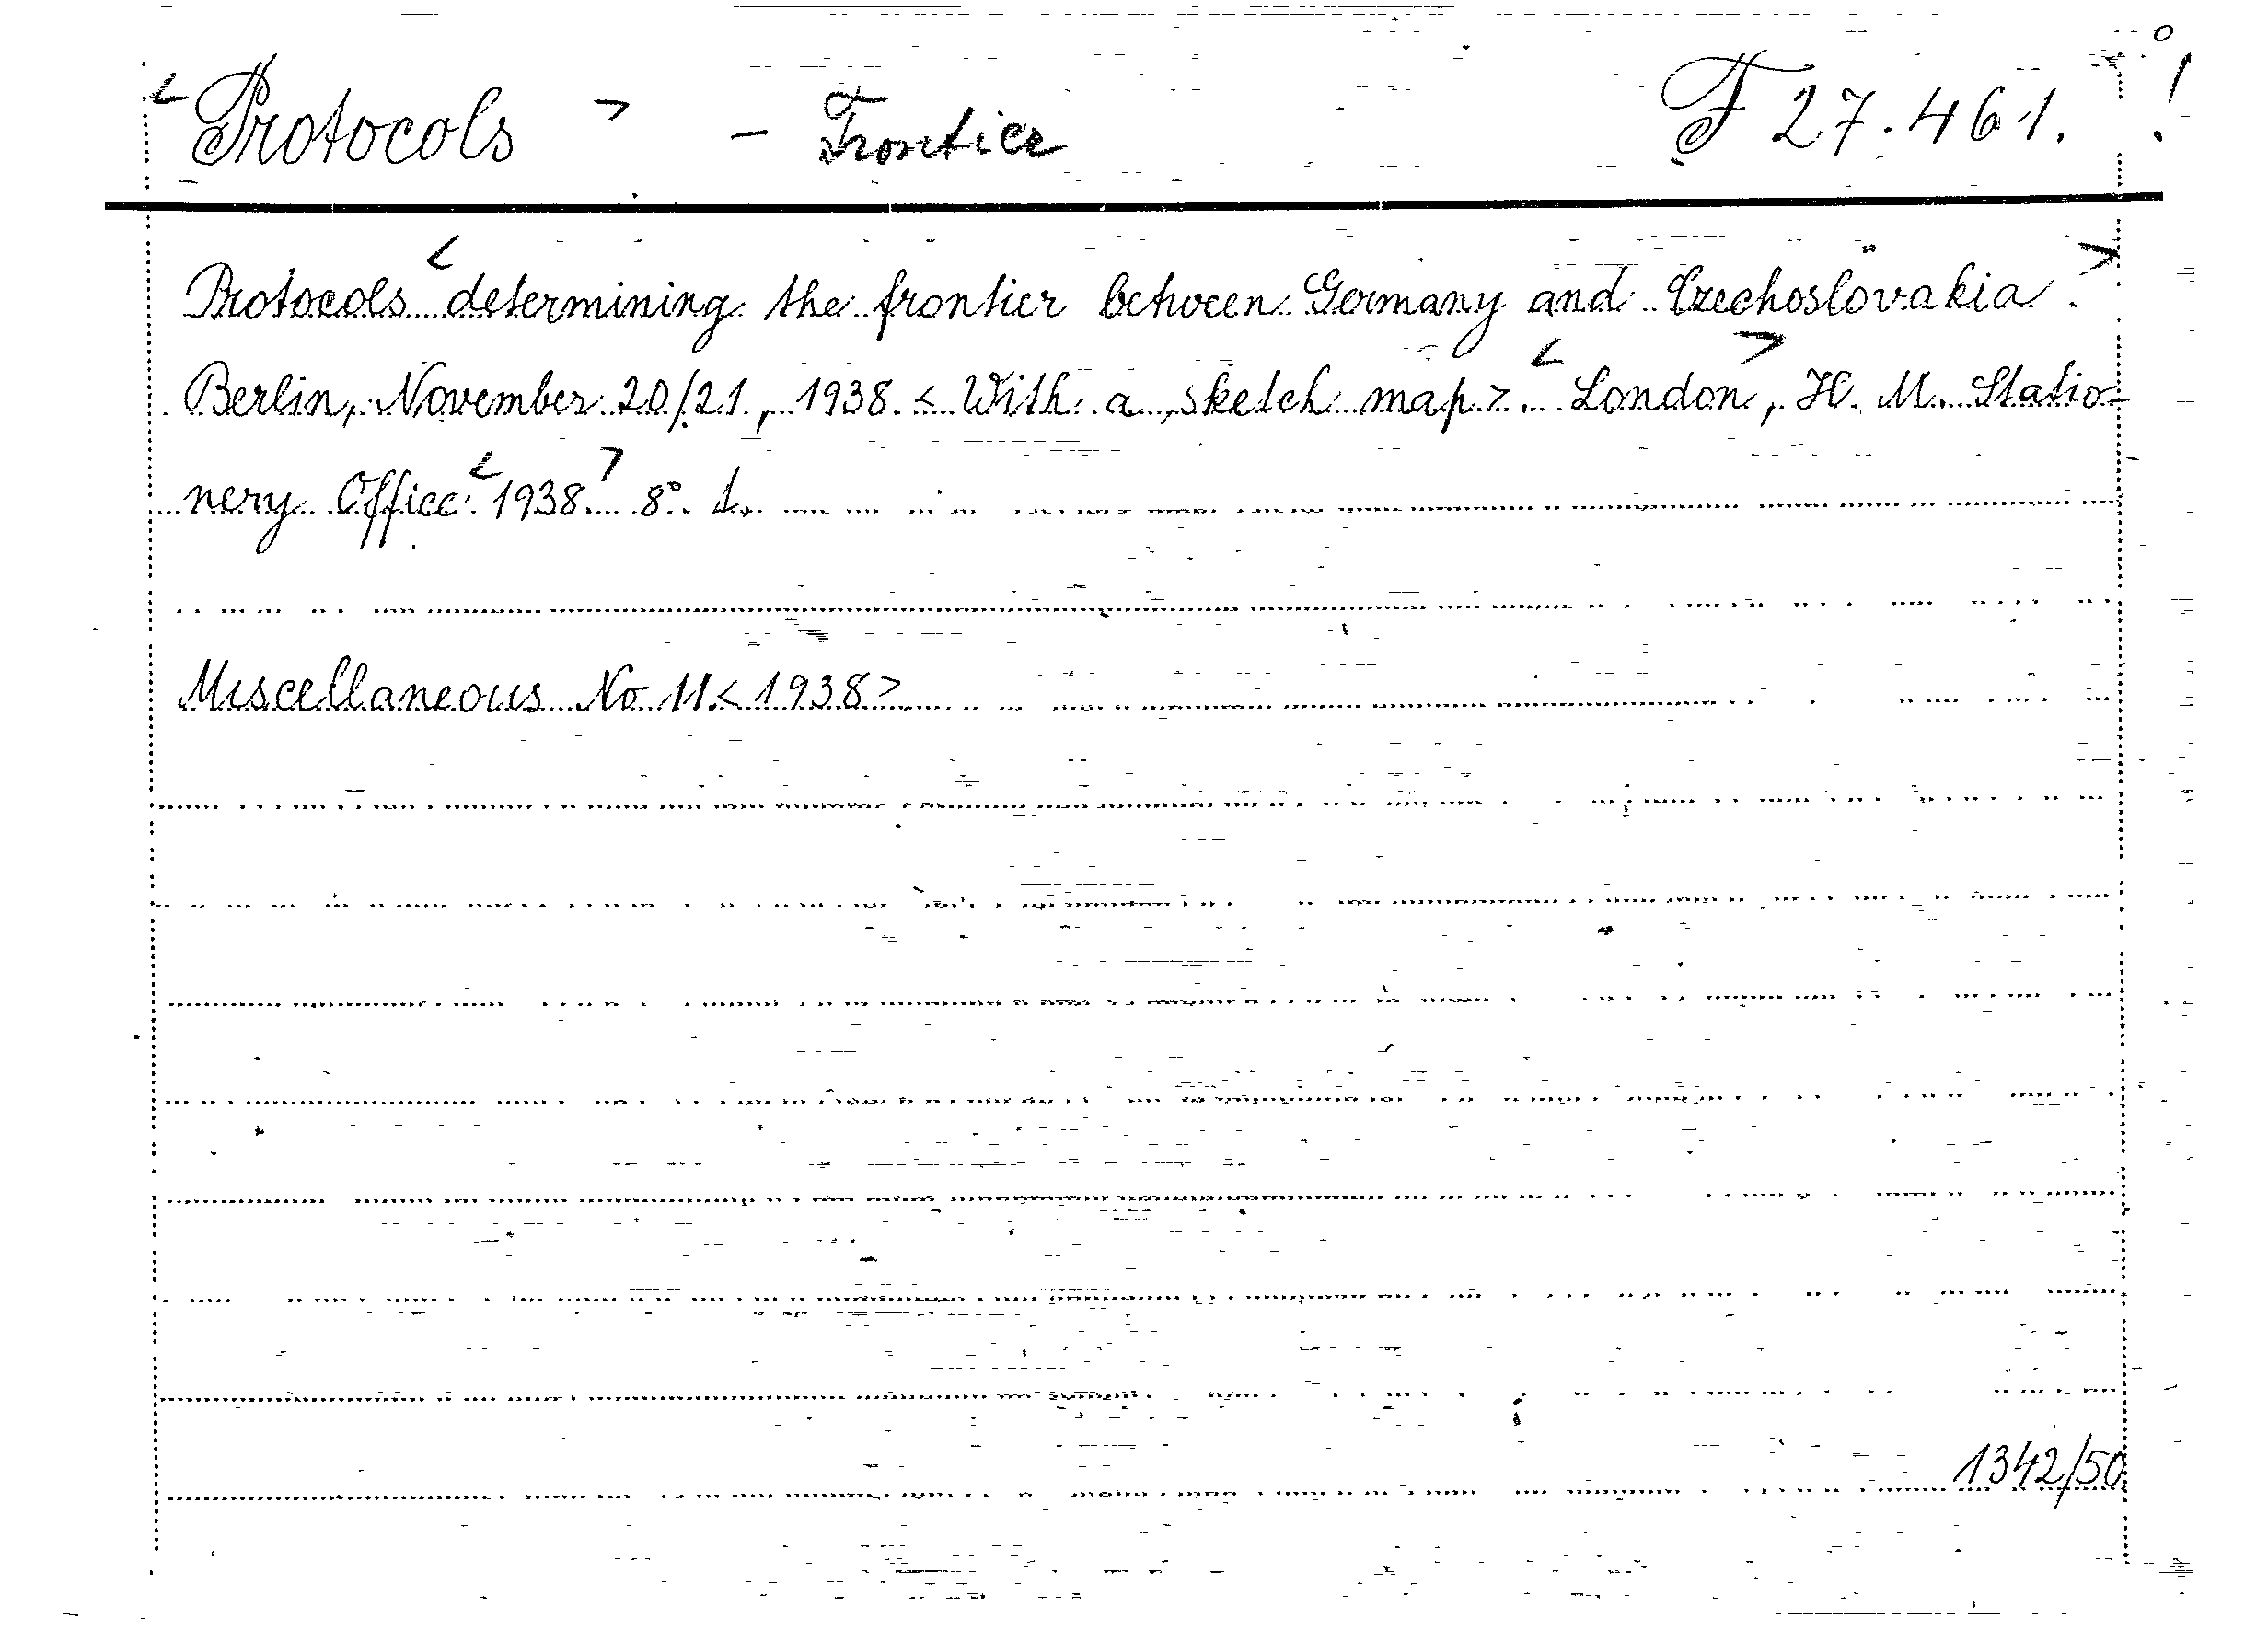 <Protocols> - Frontier F 27.461. !
Protocols <determining the frontier between Germany and Czechoslovakia>.
Berlin, November 20/21, 1938. <With a sketch map>. <London>, H. M. Statio-
nery Office <1938.> 8°.
Miscellaneous No 11.<1938>
1342/50